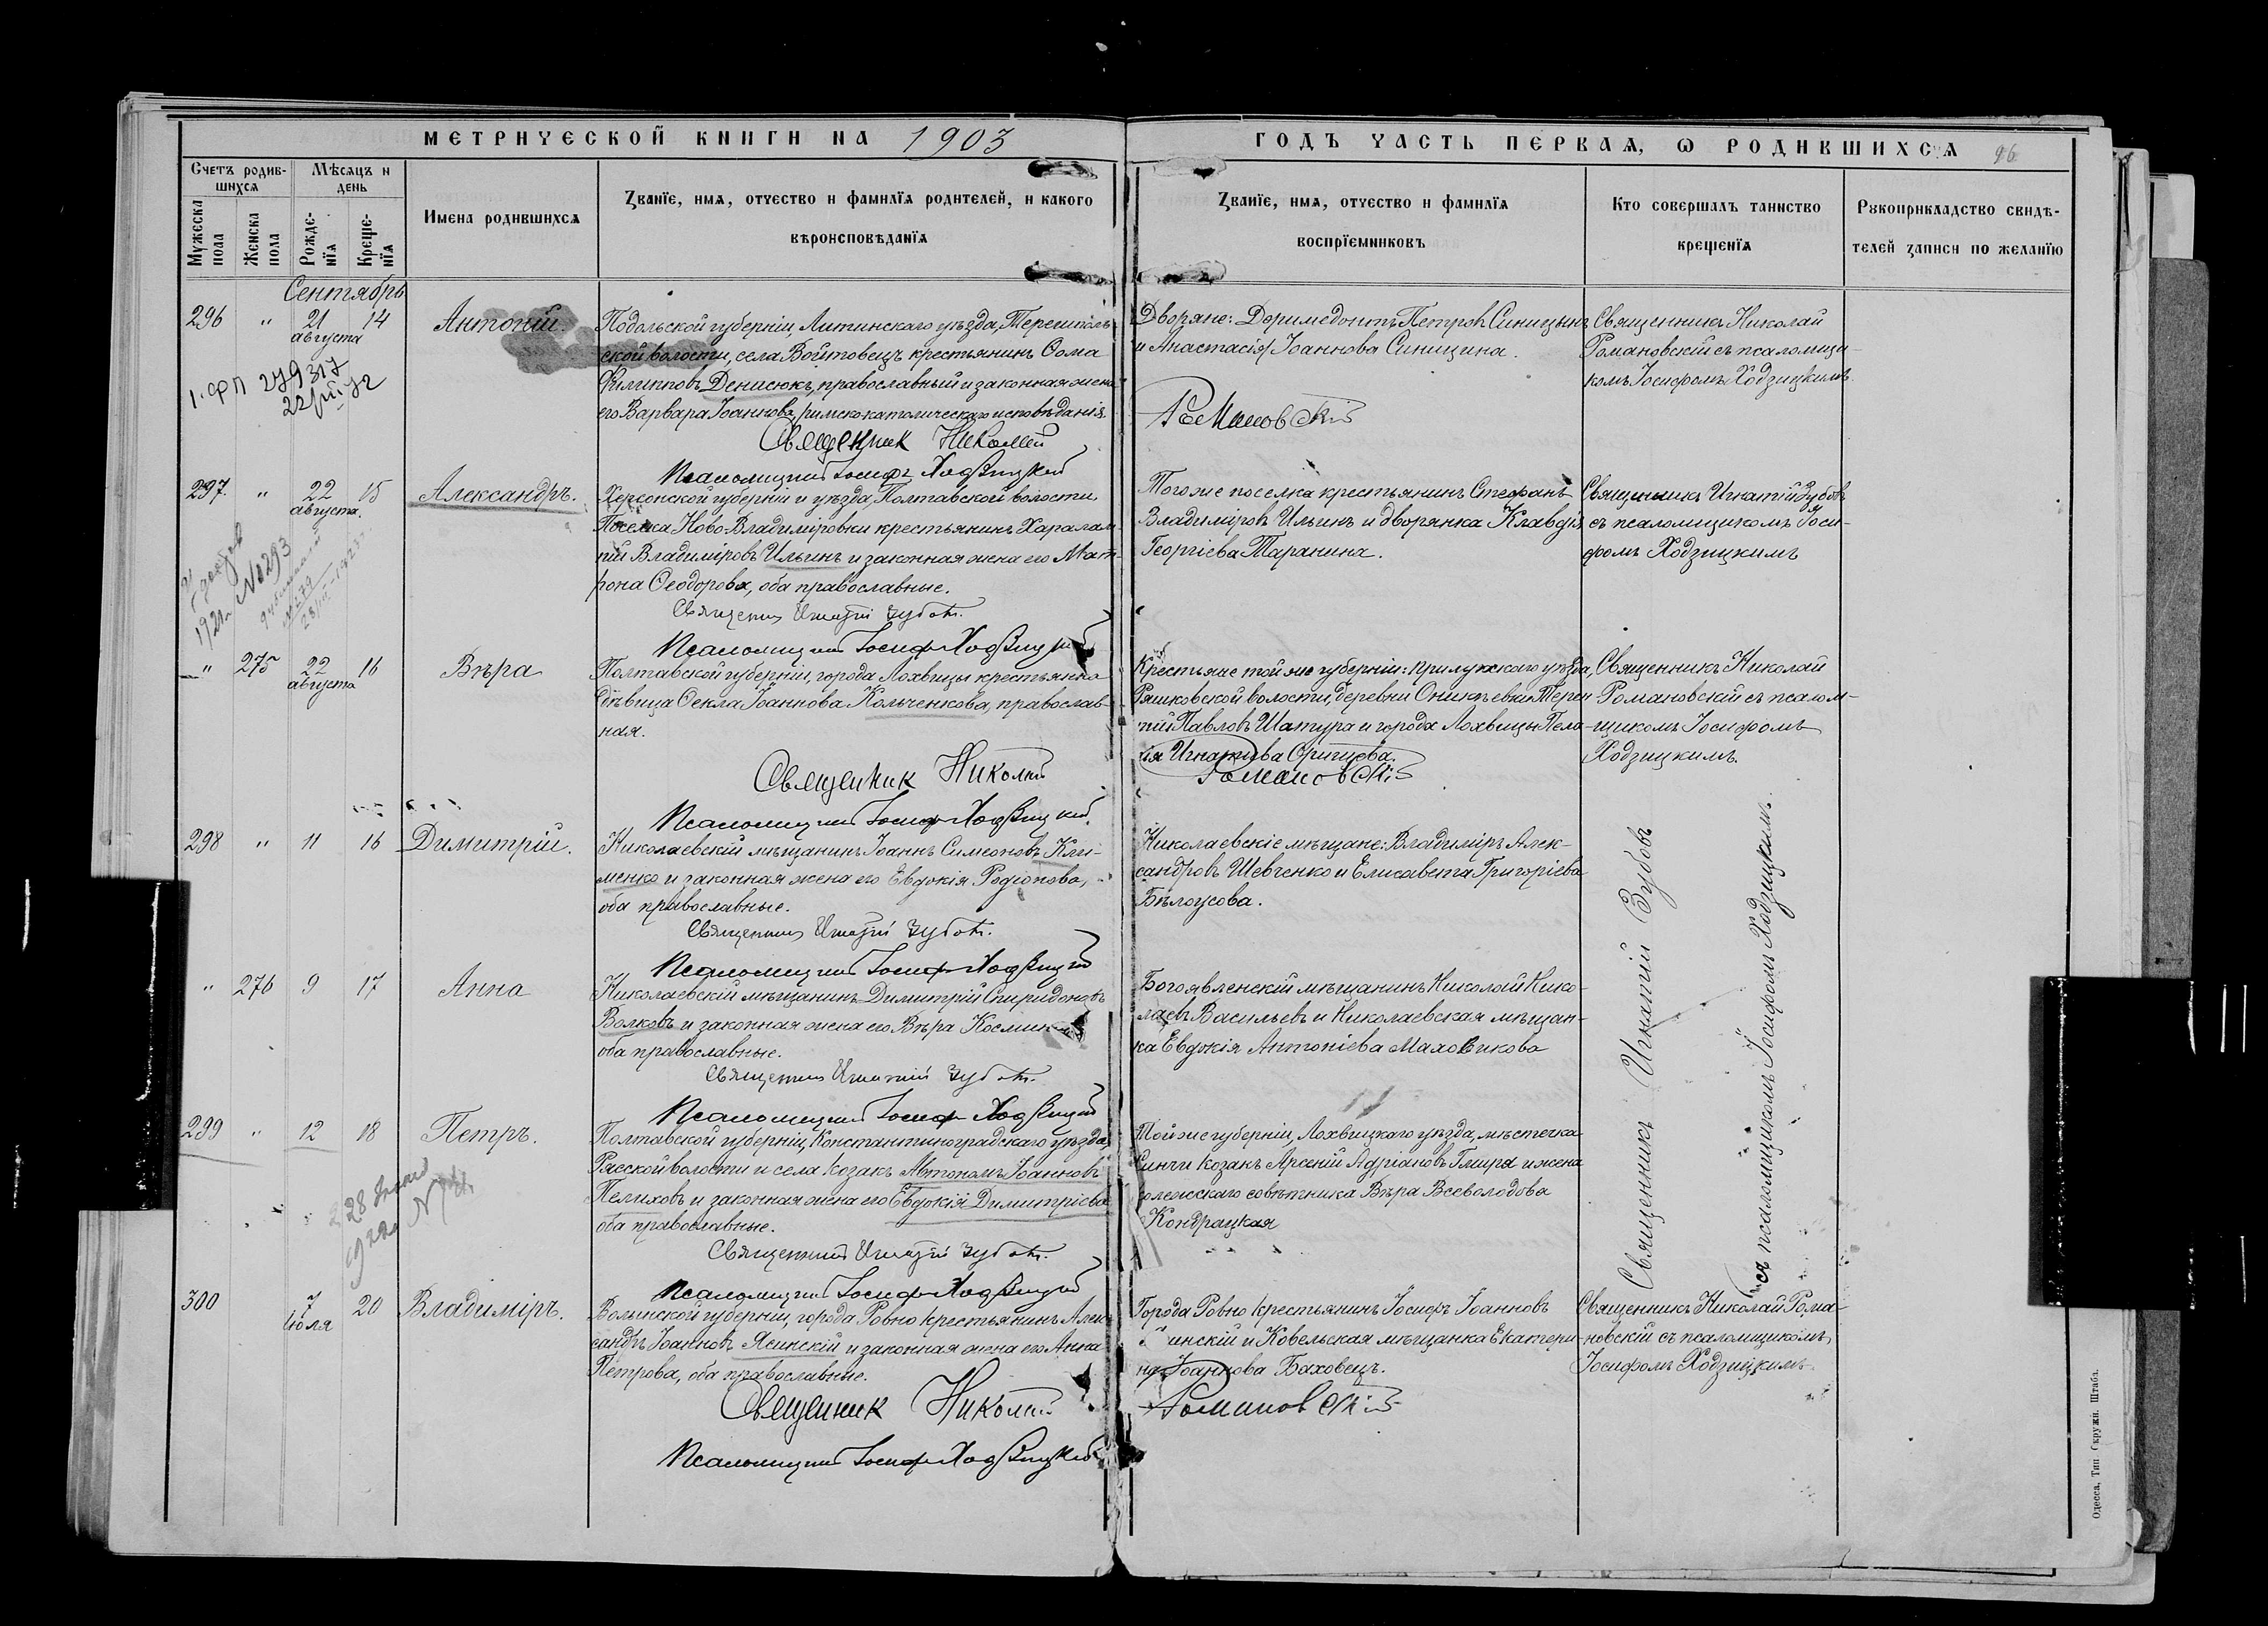 МЕТРИЧЕСКОЙ КНИГИ НА 1903
ГОДЪ ЧАСТЬ ПЕРВАЯ, Ѡ РОДИВШИХСЯ
96
Счетъ родив-
шихся
Мѣсяцъ и
день
Мужеска
пола
Женска
пола
Рожде-
нїя
Креще-
нїя
Имена родившихся
Званїе, имя, отчество и фамилїя родителей, и какого
вѣроисповѣданїя
Званїе, имя, отчество и фамилїя
воспрїемниковъ
Кто совершалъ таинство
крещенїя
Рукоприкладство свидѣ-
телей записи по желанїю
Сентябрь
296 " 21 14
августа
Антоній.
Подольской губерніи, Литинскаго уѣзда,
ской волости, села Войтовецъ крестьянинъ Ѳома
Филипповъ Денисюкъ, православный и законная жена
его Варвара Іоаннова, римско-католическаго исповѣданія.
Священник Николай
Псаломщикъ Іосифъ Ходзицкій
Дворяне: Доримедонтъ Петровъ Синицынъ
и Анастасія Іоаннова Синицина.
Романовскій
Священникъ Николай
Романовскій съ псаломщи-
комъ Іосифомъ Ходзицкимъ
297. " 22 15
августа.
Александръ.
Херсонской губерніи и уѣзда, Полтавской волости,
Поселка Ново-Владиміровки крестьянинъ Харалам-
пій Владиміровъ Ильинъ и законная жена его Мат-
рона Ѳеодорова, оба православные.
Священникъ Игнатій Зубовъ.
Псаломщикъ Іосифъ Ходзицкій
Того же поселка крестьянинъ Стефанъ
Владиміровъ Ильинъ и дворянка Клавдія
Георгіева Таранина.
Священникъ Игнатій Зубовъ
съ псаломщикомъ Іоси-
фомъ Ходзицкимъ
№ 293
" 275 22 16
августа
Вѣра
Полтавской губерніи, города Лохвицы крестьянка
дѣвица Ѳекла Іоаннова Кольченкова, православ-
ная.
Священник Николай
Псаломщикъ Іосифъ Ходзицкій.
Крестьяне той же губерніи: Прилукскаго уѣзда,
Ряшковской волости, деревни
Павловъ Шатура и города Лохвицы Пела-
Игнатіева
Романовскій
Священникъ Николай
Романовскій съ псалом-
щикомъ Іосифомъ
Ходзицкимъ.
298 " 11 16
Димитрій.
Николаевскій мѣщанинъ Іоаннъ Симеоновъ Кли-
менко и законная жена его Евдокія Родіонова,
оба православные.
Священникъ Игнатій Зубовъ.
Псаломщикъ Іосифъ Ходзицкій
Николаевскіе мѣщане: Владиміръ Алек-
сандровъ Шевченко и Елисавета Григоріева
Бѣлоусова.
" 276 9 17
Анна
Николаевскій мѣщанинъ Димитрій Спиридоновъ
Волковъ и законная жена его Вѣра
оба православные.
Священникъ Игнатій Зубовъ.
Псаломщикъ Іосифъ Ходзицкій
Богоявленскій мѣщанинъ Николай Нико-
лаевъ Васильевъ и Николаевская мѣщан-
ка Евдокія Антоніева Маховикова
299 " 12 18
Петръ.
Полтавской губерніи, Константиноградскаго уѣзда,
Рясской волости и села козакъ Автономъ Іоанновъ
Пелиховъ и законная жена его Евдокія Димитріева
оба православные.
Священникъ Игнатій Зубовъ.
Псаломщикъ Іосифъ Ходзицкій
Той же губерніи, Лохвицкаго уѣзда, мѣстечка
козакъ Арсеній Адріановъ Гмиря и жена
совѣтника Вѣра Всеволодова
Кондрацкая
Священникъ Игнатій Зубовъ
съ псаломщикомъ Іосифомъ Ходзицкимъ.
300 7 20
іюля
Владиміръ.
Волынской губерніи, города Ровно крестьянинъ Алек-
сандръ Іоанновъ Ясинскій и законная жена его Анна
Петрова, оба православные.
Священник Николай
Псаломщикъ Іосифъ Ходзицкій
Города Ровно крестьянинъ Іосифъ Іоанновъ
инскій и Ковельская мѣщанка Екатери-
на Іоаннова Баховецъ.
Романовскій
Священникъ Николай Рома-
новскій съ псаломщикомъ
Іосифомъ Ходзицкимъ
Одесса, Тип. Окружн. Штаба.